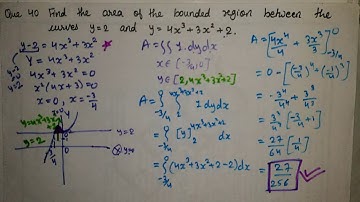 Que 40 Find the area of the bounded region between the
curves y=2 and y = 4x³+3x²+2.
y-2 = 4x³+3x²
Y = 4x³+3x²
4x³+3x² = 0
x²(4x+3) = 0
x=0, x = -3/4
y=2
y=2
A = ∬ 1 dydx
x ∈ [-3/4, 0]
y ∈ [2, 4x³+3x²+2]
A = ∫_{-3/4}^{0} ∫_{2}^{4x³+3x²+2} 1 dydx
= ∫_{-3/4}^{0} [y]_{2}^{4x³+3x²+2} dx
= ∫_{-3/4}^{0} (4x³+3x²+2-2) dx
A = [4x⁴/4 + 3x³/3]_{-3/4}^{0}
= 27/64 [-3/4+1]
= 27/256